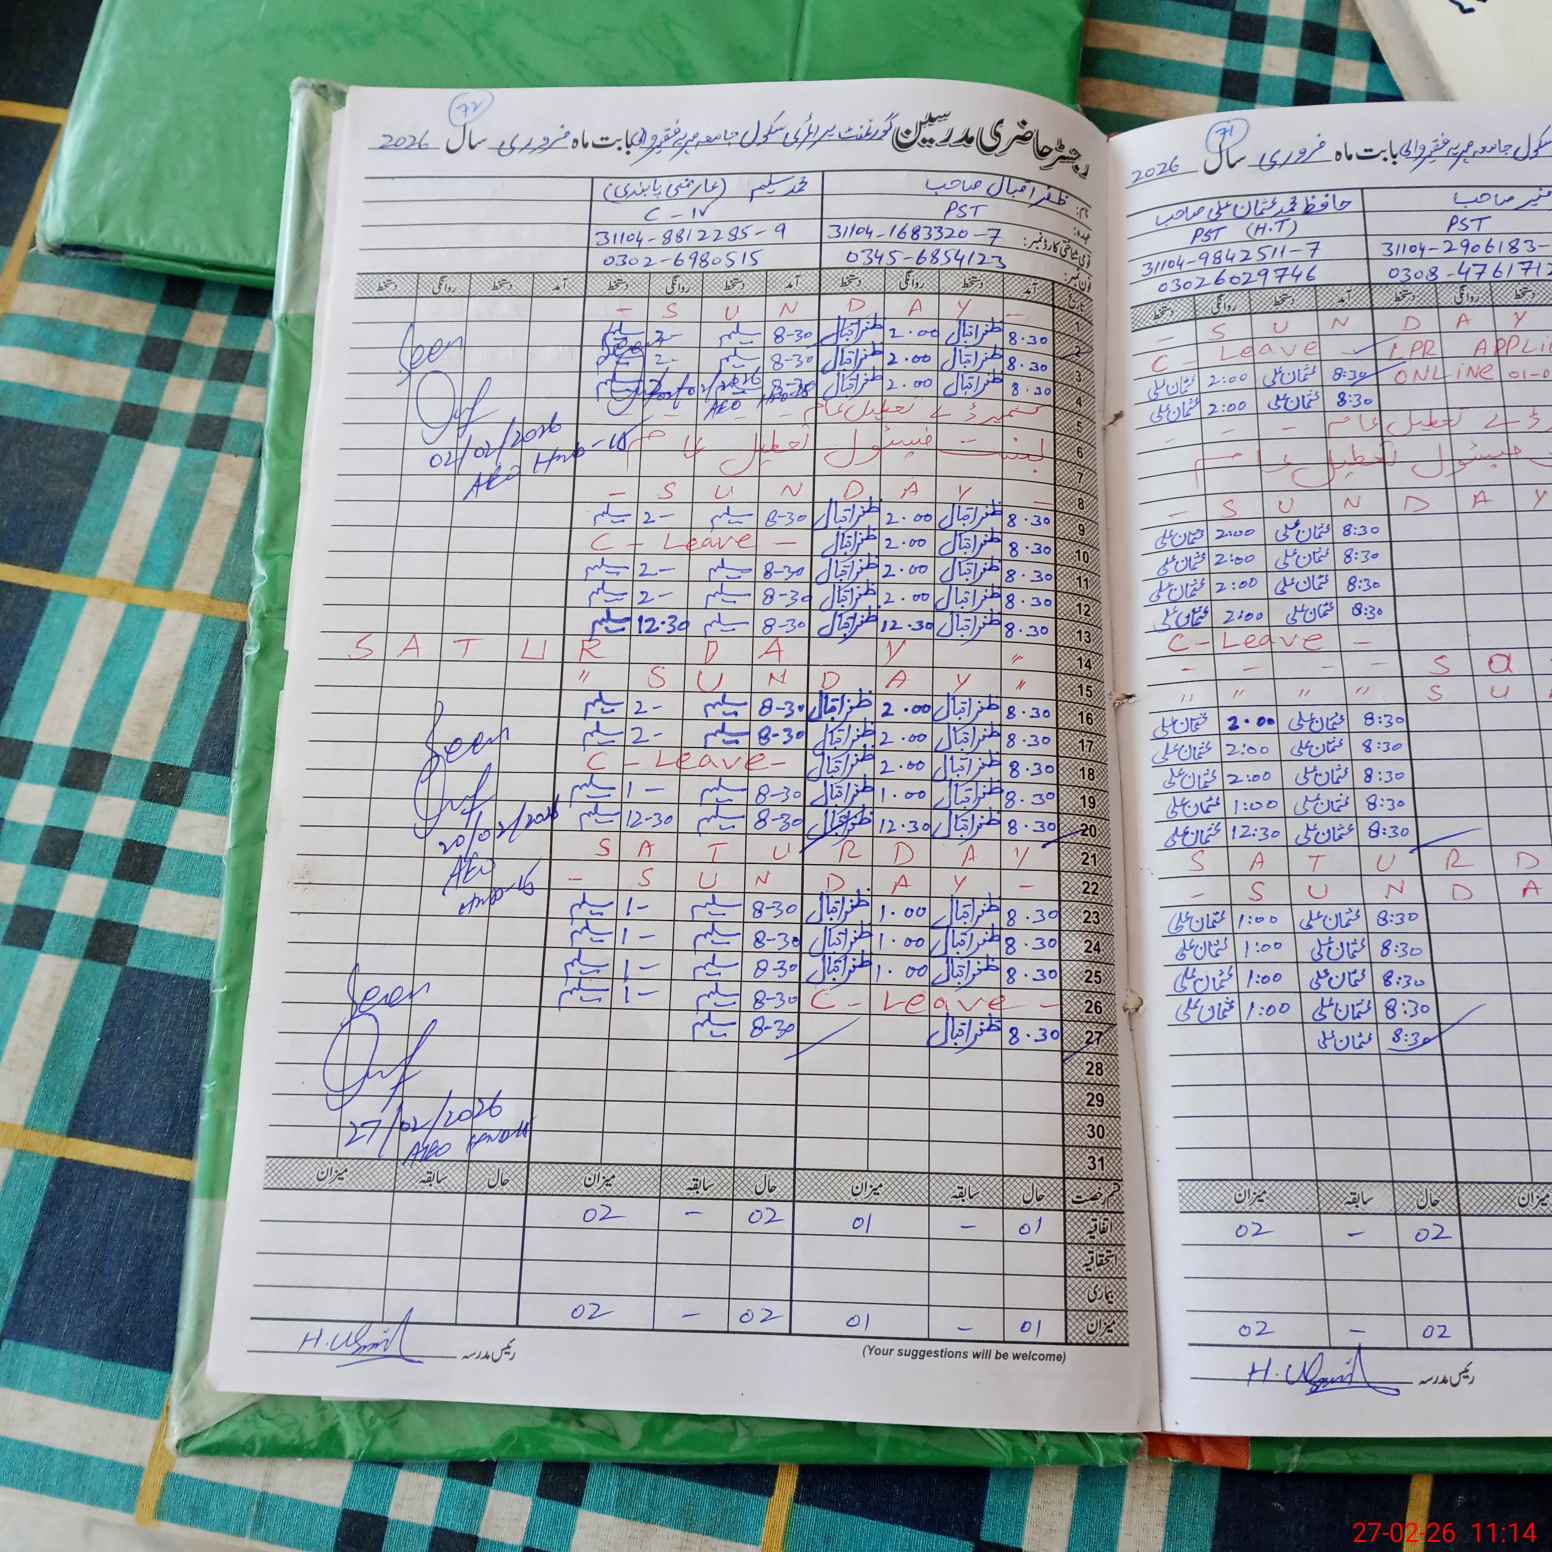 رجسٹر حاضری مدرسین گورنمنٹ پرائمری سکول جامعہ عربیہ فقیر والی بابت ماہ فروری سال 2026
72
نام: ظفر اقبال صاحب محمد سلیم (عارضی پابندی)
عہدہ: PST C-IV
31104-1683320-7 31104-8812285-9
0345-6854123 0302-6980515
تاریخ آمد دستخط روانگی دستخط آمد دستخط روانگی دستخط آمد دستخط روانگی دستخط
1 - Y A D N U S -
2 8.30 ظفر اقبال 2.00 ظفر اقبال 8-30 سلیم 2- سلیم
3 8.30 ظفر اقبال 2.00 ظفر اقبال 8-30 سلیم 2- سلیم
4 8.30 ظفر اقبال 2.00 ظفر اقبال 8-30 سلیم
5 کشمیر ڈے تعطیل عام
6 بسنت فیسٹول تعطیل عام
7
8 - Y A D N U S -
9 8.30 ظفر اقبال 2.00 ظفر اقبال 8-30 سلیم 2- سلیم
10 8.30 ظفر اقبال 2.00 ظفر اقبال C - Leave -
11 8.30 ظفر اقبال 2.00 ظفر اقبال 8-30 سلیم 2- سلیم
12 8.30 ظفر اقبال 2.00 ظفر اقبال 8-30 سلیم 2- سلیم
13 8.30 ظفر اقبال 12.30 ظفر اقبال 8-30 سلیم 12.30 سلیم
14 S A T U R D A Y "
15 " S U N D A Y "
16 8.30 ظفر اقبال 2.00 ظفر اقبال 8-30 سلیم 2- سلیم
17 8.30 ظفر اقبال 2.00 ظفر اقبال 8-30 سلیم 2- سلیم
18 8.30 ظفر اقبال 2.00 ظفر اقبال C - Leave -
19 8.30 ظفر اقبال 1.00 ظفر اقبال 8-30 سلیم 1- سلیم
20 8.30 ظفر اقبال 12.30 ظفر اقبال 8-30 سلیم 12-30 سلیم
21 S A T U R D A Y
22 - S U N D A Y -
23 8.30 ظفر اقبال 1.00 ظفر اقبال 8-30 سلیم 1- سلیم
24 8.30 ظفر اقبال 1.00 ظفر اقبال 8-30 سلیم 1- سلیم
25 8.30 ظفر اقبال 1.00 ظفر اقبال 8-30 سلیم 1- سلیم
26 C - Leave - 8-30 سلیم 1- سلیم
27 8.30 ظفر اقبال 8-30 سلیم
28
29
30
31
Seen
02/02/2026
AEO
Seen
20/02/2026
AEO
Seen
27/02/2026
AEO
قسم رخصت حال سابقہ میزان حال سابقہ میزان حال سابقہ میزان
اتفاقیہ 01 - 01 02 - 02
استحقاقیہ
بیماری
میزان 01 - 01 02 - 02
(Your suggestions will be welcome)
رئیس مدرسہ
سکول جامعہ عربیہ فقیر والی بابت ماہ فروری سال 2026
71
صاحب حافظ محمد عثمان علی صاحب
PST PST (H.T)
31104-2906183- 31104-9842511-7
0308-476171 03026029746
دستخط روانگی دستخط آمد دستخط روانگی دستخط
- S U N D A Y
C - Leave - LPR APPLI
8:30 عثمان علی 2:00 عثمان علی ONLINE 01-0
8:30 عثمان علی 2:00 عثمان علی
ڈے تعطیل عام
فیسٹول تعطیل عام
- S U N D A Y
8:30 عثمان علی 2:00 عثمان علی
8:30 عثمان علی 2:00 عثمان علی
8:30 عثمان علی 2:00 عثمان علی
8:30 عثمان علی 2:00 عثمان علی
C - Leave -
- - - - S a
" " " " S U
8:30 عثمان علی 2.00 عثمان علی
8:30 عثمان علی 2:00 عثمان علی
8:30 عثمان علی 2:00 عثمان علی
8:30 عثمان علی 1:00 عثمان علی
8:30 عثمان علی 12:30 عثمان علی
S A T U R D
- S U N D A
8:30 عثمان علی 1:00 عثمان علی
8:30 عثمان علی 1:00 عثمان علی
8:30 عثمان علی 1:00 عثمان علی
8:30 عثمان علی 1:00 عثمان علی
8:30 عثمان علی
میزان حال سابقہ میزان
02 - 02
02 - 02
رئیس مدرسہ
27-02-26 11:14